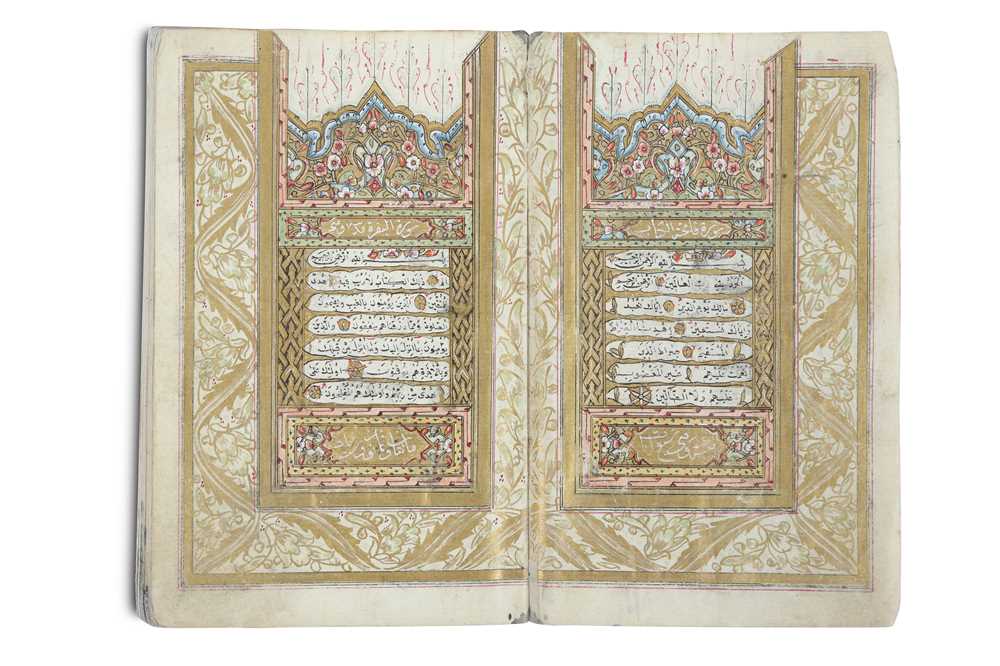 سورة فاتحة الكتاب
بسم الله الرحمن الرحيم
الحمد لله رب العالمين الرحمن الرحيم
مالك يوم الدين اياك نعبد
واياك نستعين اهدنا الصراط
المستقيم صراط الذين
انعمت عليهم غير المغضوب
عليهم ولا الضالين
سورة البقرة
بسم الله الرحمن الرحيم
الم ذلك الكتاب لا ريب فيه هدى
للمتقين الذين يؤمنون بالغيب ويقيمون
الصلوة ومما رزقناهم ينفقون والذين
يؤمنون بما انزل اليك وما انزل من قبلك
وبالاخرة هم يوقنون اولئك على
هدى من ربهم واولئك هم المفلحون